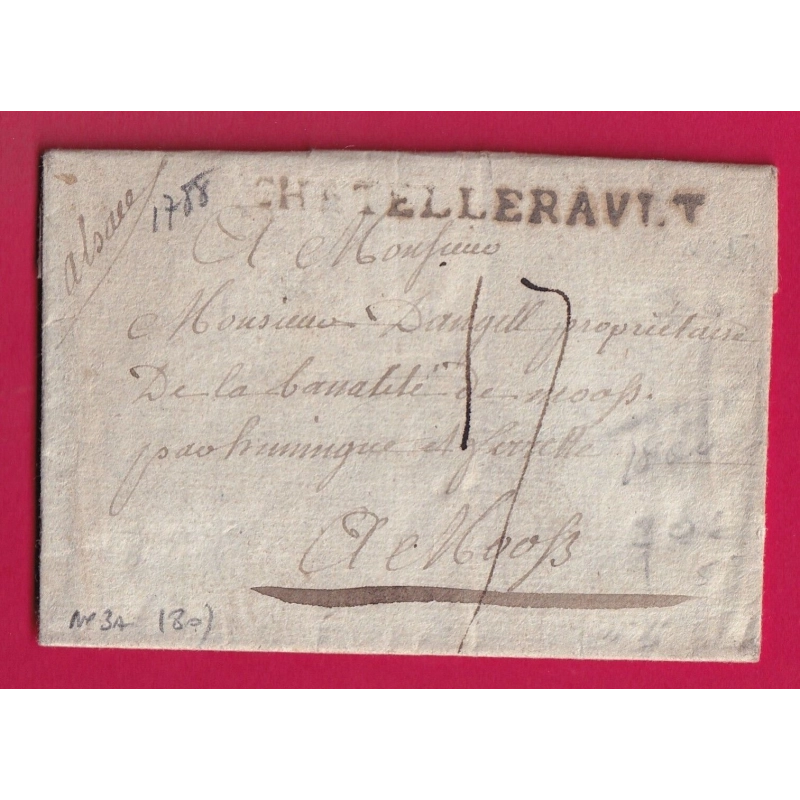 alsace
1788
CHATELLERAULT
A Monsieur
17
Monsieur Dangell propriétaire
De la banalité de mooss.
par huningue et ferrette
A Mooss
N° 3A (80)